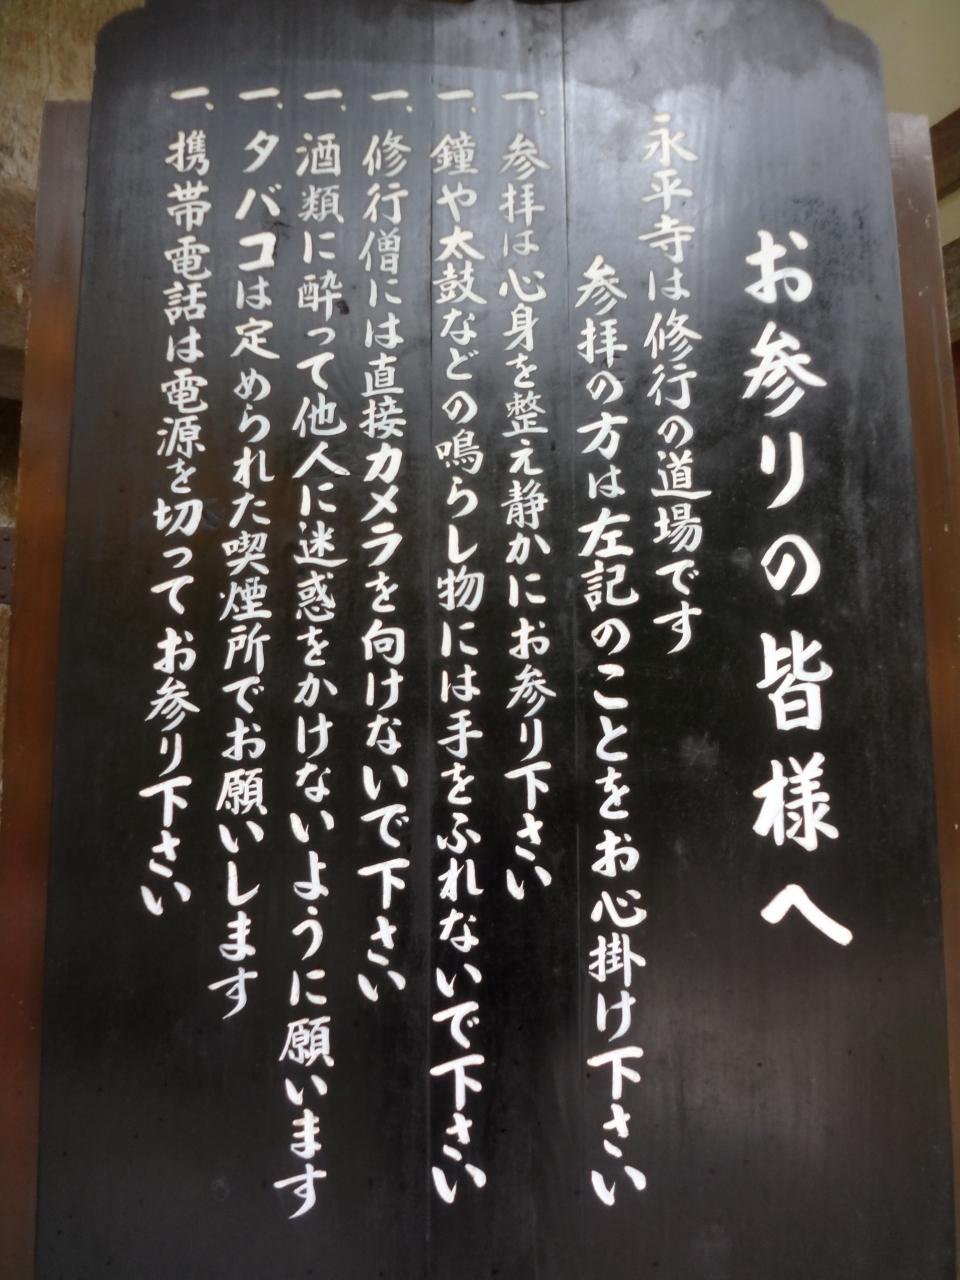 お参りの皆様へ
永平寺は修行の道場です
参拝の方は左記のことをお心掛け下さい
一、参拝は心身を整え静かにお参り下さい
一、鐘や太鼓などの鳴らし物には手をふれないで下さい
一、修行僧には直接カメラを向けないで下さい
一、酒類に酔って他人に迷惑をかけないように願います
一、タバコは定められた喫煙所でお願いします
一、携帯電話は電源を切ってお参り下さい